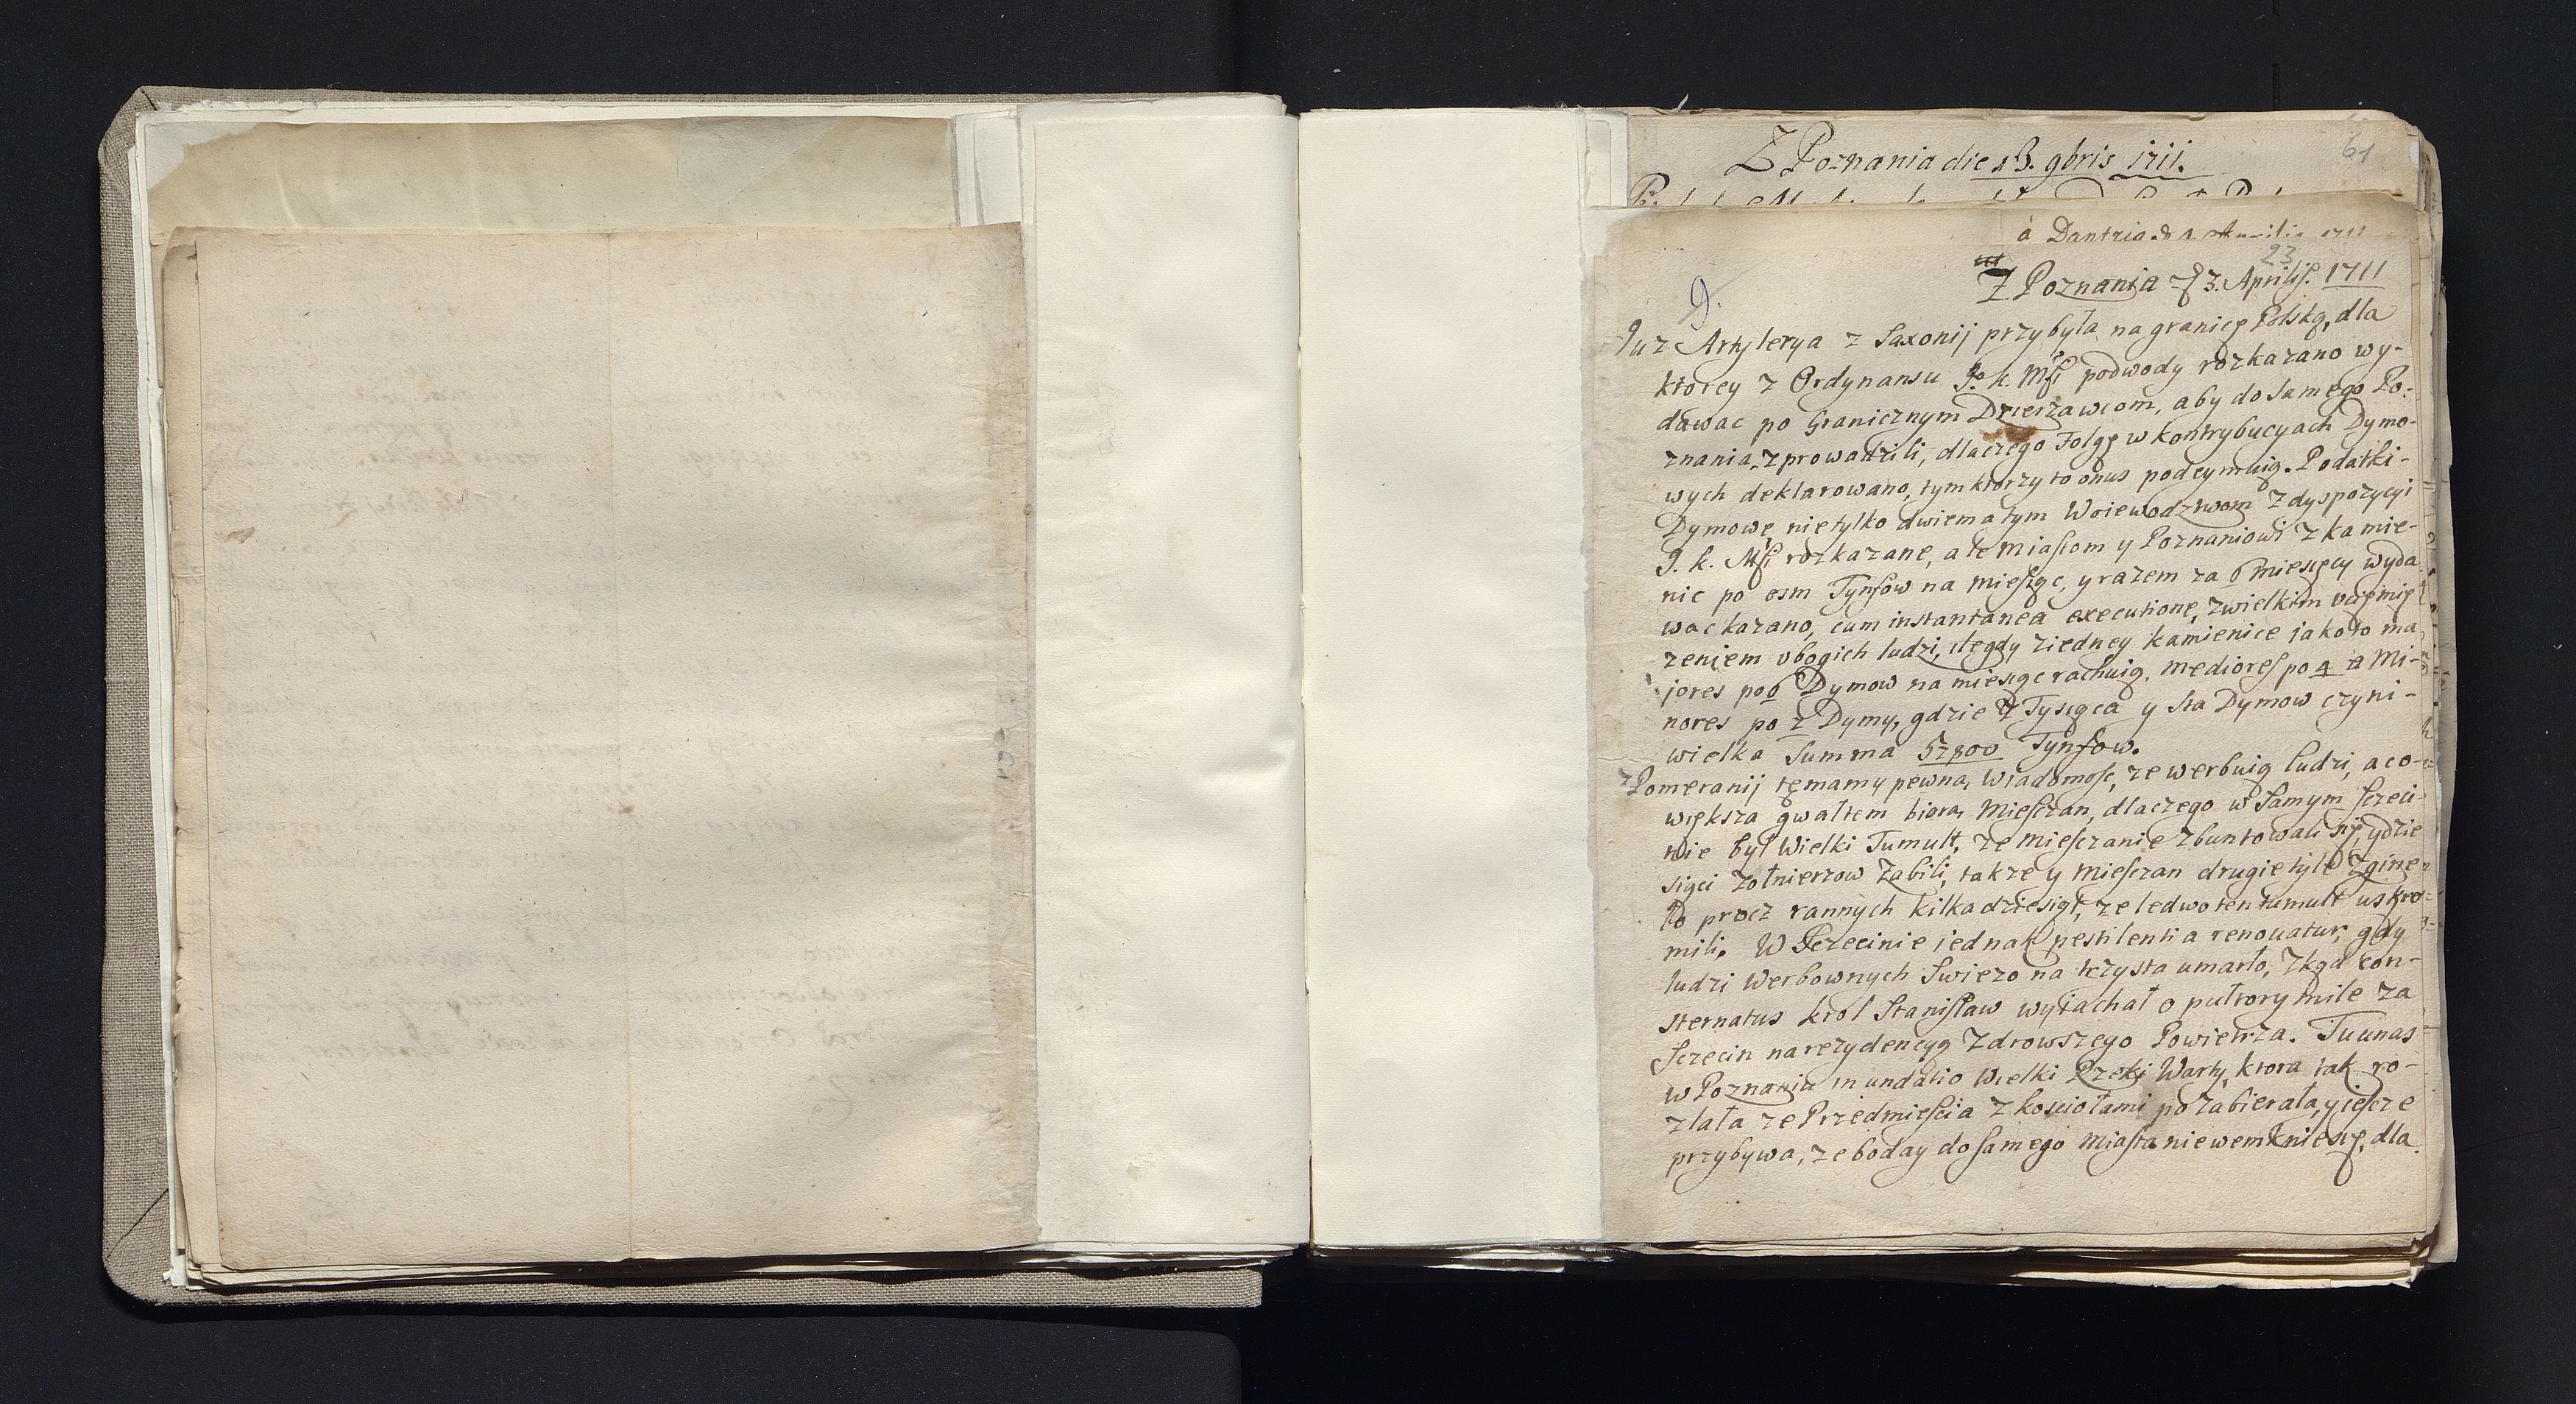 Z Poznania die 13. 9bris 1711.
61
à Dantzia
23
Z Poznania 3. Aprilis. 1711
9.
Juz Artylerya z Saxonij przybyła na granicę Polską, dla
ktorey z Ordynansu J. k. Msci podwody rozkazano wy-
dawac po Granicznym Dzierzawcom, aby do samego Po-
znania, zprowadzili, dlaczego Folgę w kontrybucyach Dymo-
wych deklarowano, tym ktorzy to onus podeymuią. Podatki-
Dymowe nietylko dwiema tym Woiewodztwom z dyspozycyi
J. k. Msci rozkazane, ale miastom y Poznaniowi z kamie-
nic po osm Tynfow na miesząc, y razem za 6 miesięcy wyda
wac kazano, cum instantanea executione, z wielkim ucięmię
zeniem vbogich ludzi, ile gdy z iedney kamienice jako to ma
jores po 6 Dymow na miesiąc rachuią, mediores po 4 a Mi-
nores po 2 Dymy, gdzie Tysięca y sta Dymow czyni-
wielka Summa 52800 Tynfow.
z Pomeranij tę mamy pewną, wiadomosc, ze werbuią ludzi, a co-
większa gwałtem biorą, Miesczan, dlaczego w samym sczeci
nie był wielki Tumult, ze miesczanie zbuntowali się, y dzie
sięci zołnierzow zabili, takze y miesczan drugie tyle zgine
ło procz rannych kilkadziesiąt, ze ledwo ten tumult uskro-
mili. W Sczecinie jednak pestilentia renouatur, gdy
ludzi werbownych swiezo na trzysta umarło, zkąd con-
sternatus krol Stanisław wyiachał o pułtory mile za
Sczecin na rezydencyą zdrowszego Powietrza. Tu u nas
w Poznaniu inundatio wielki Rzeki Warty, ktora tak ro-
zlała ze Przedmiescia z kosciołami pozabierała, y iescze
przybywa, ze boday do samego miasta niewemknie się, dla